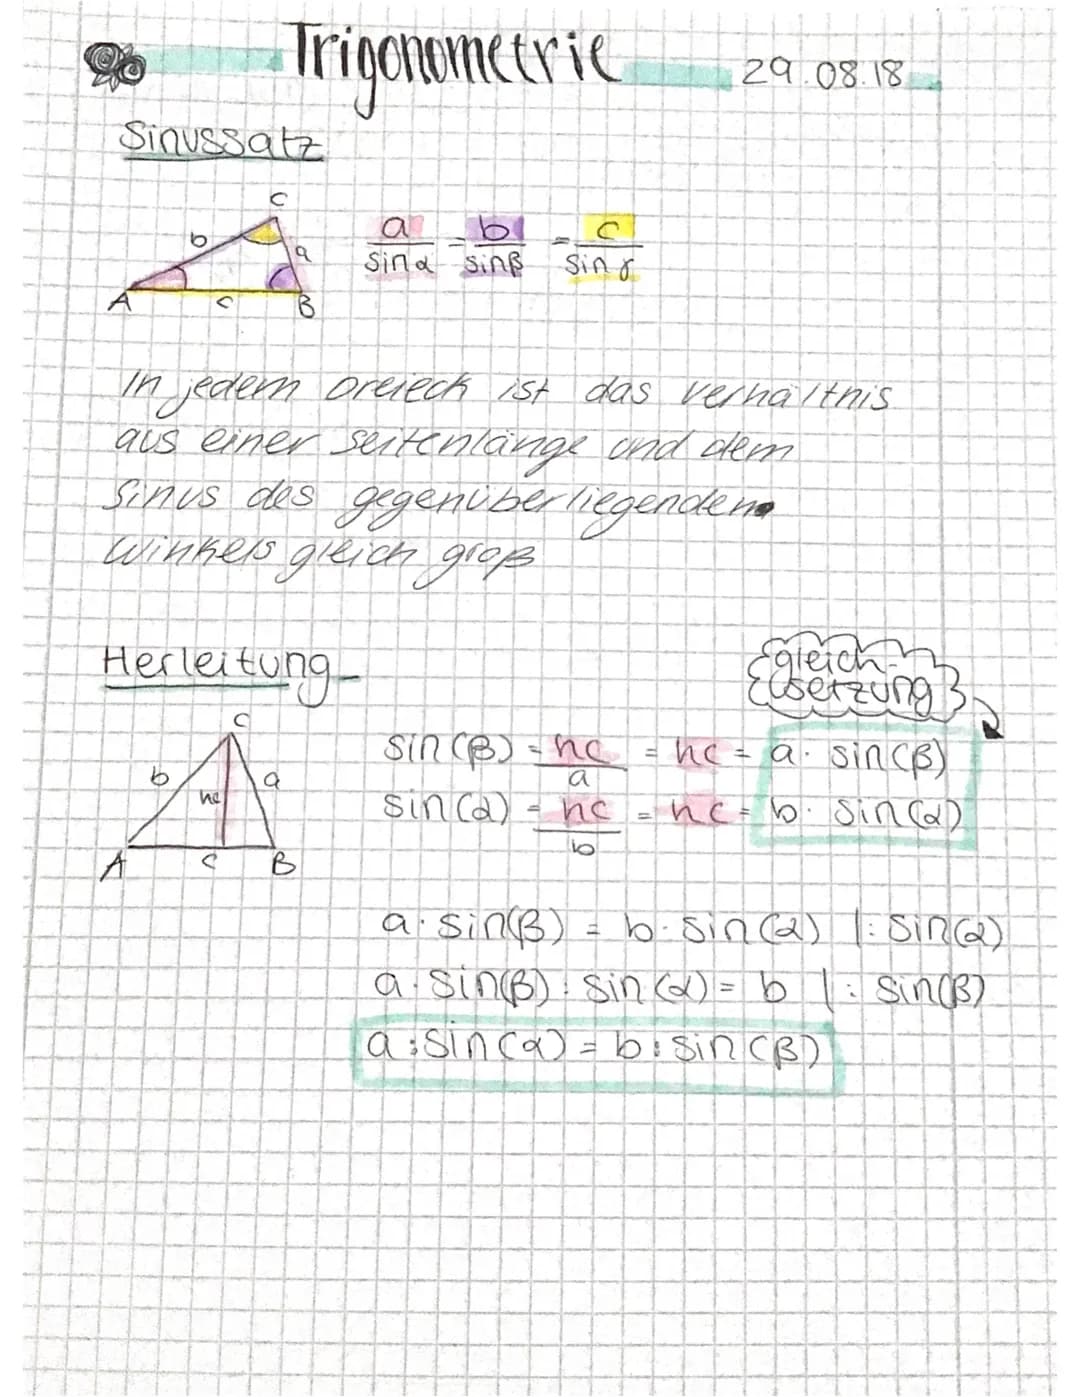 Trigonometrie 29.08.18
Sinussatz
C
b a
A c B
a/sin α = b/sin β = c/sin γ
In jedem Dreieck ist das Verhältnis
aus einer Seitenlänge und dem
Sinus des gegenüberliegenden
Winkels gleich groß
Herleitung
gleich-
setzung
C
b hc a
A c B
sin(β) = hc/a = hc = a · sin(β)
sin(α) = hc/b = hc = b · sin(α)
a · sin(β) = b · sin(α) |: sin(α)
a · sin(β) : sin(α) = b |: sin(β)
a : sin(α) = b : sin(β)